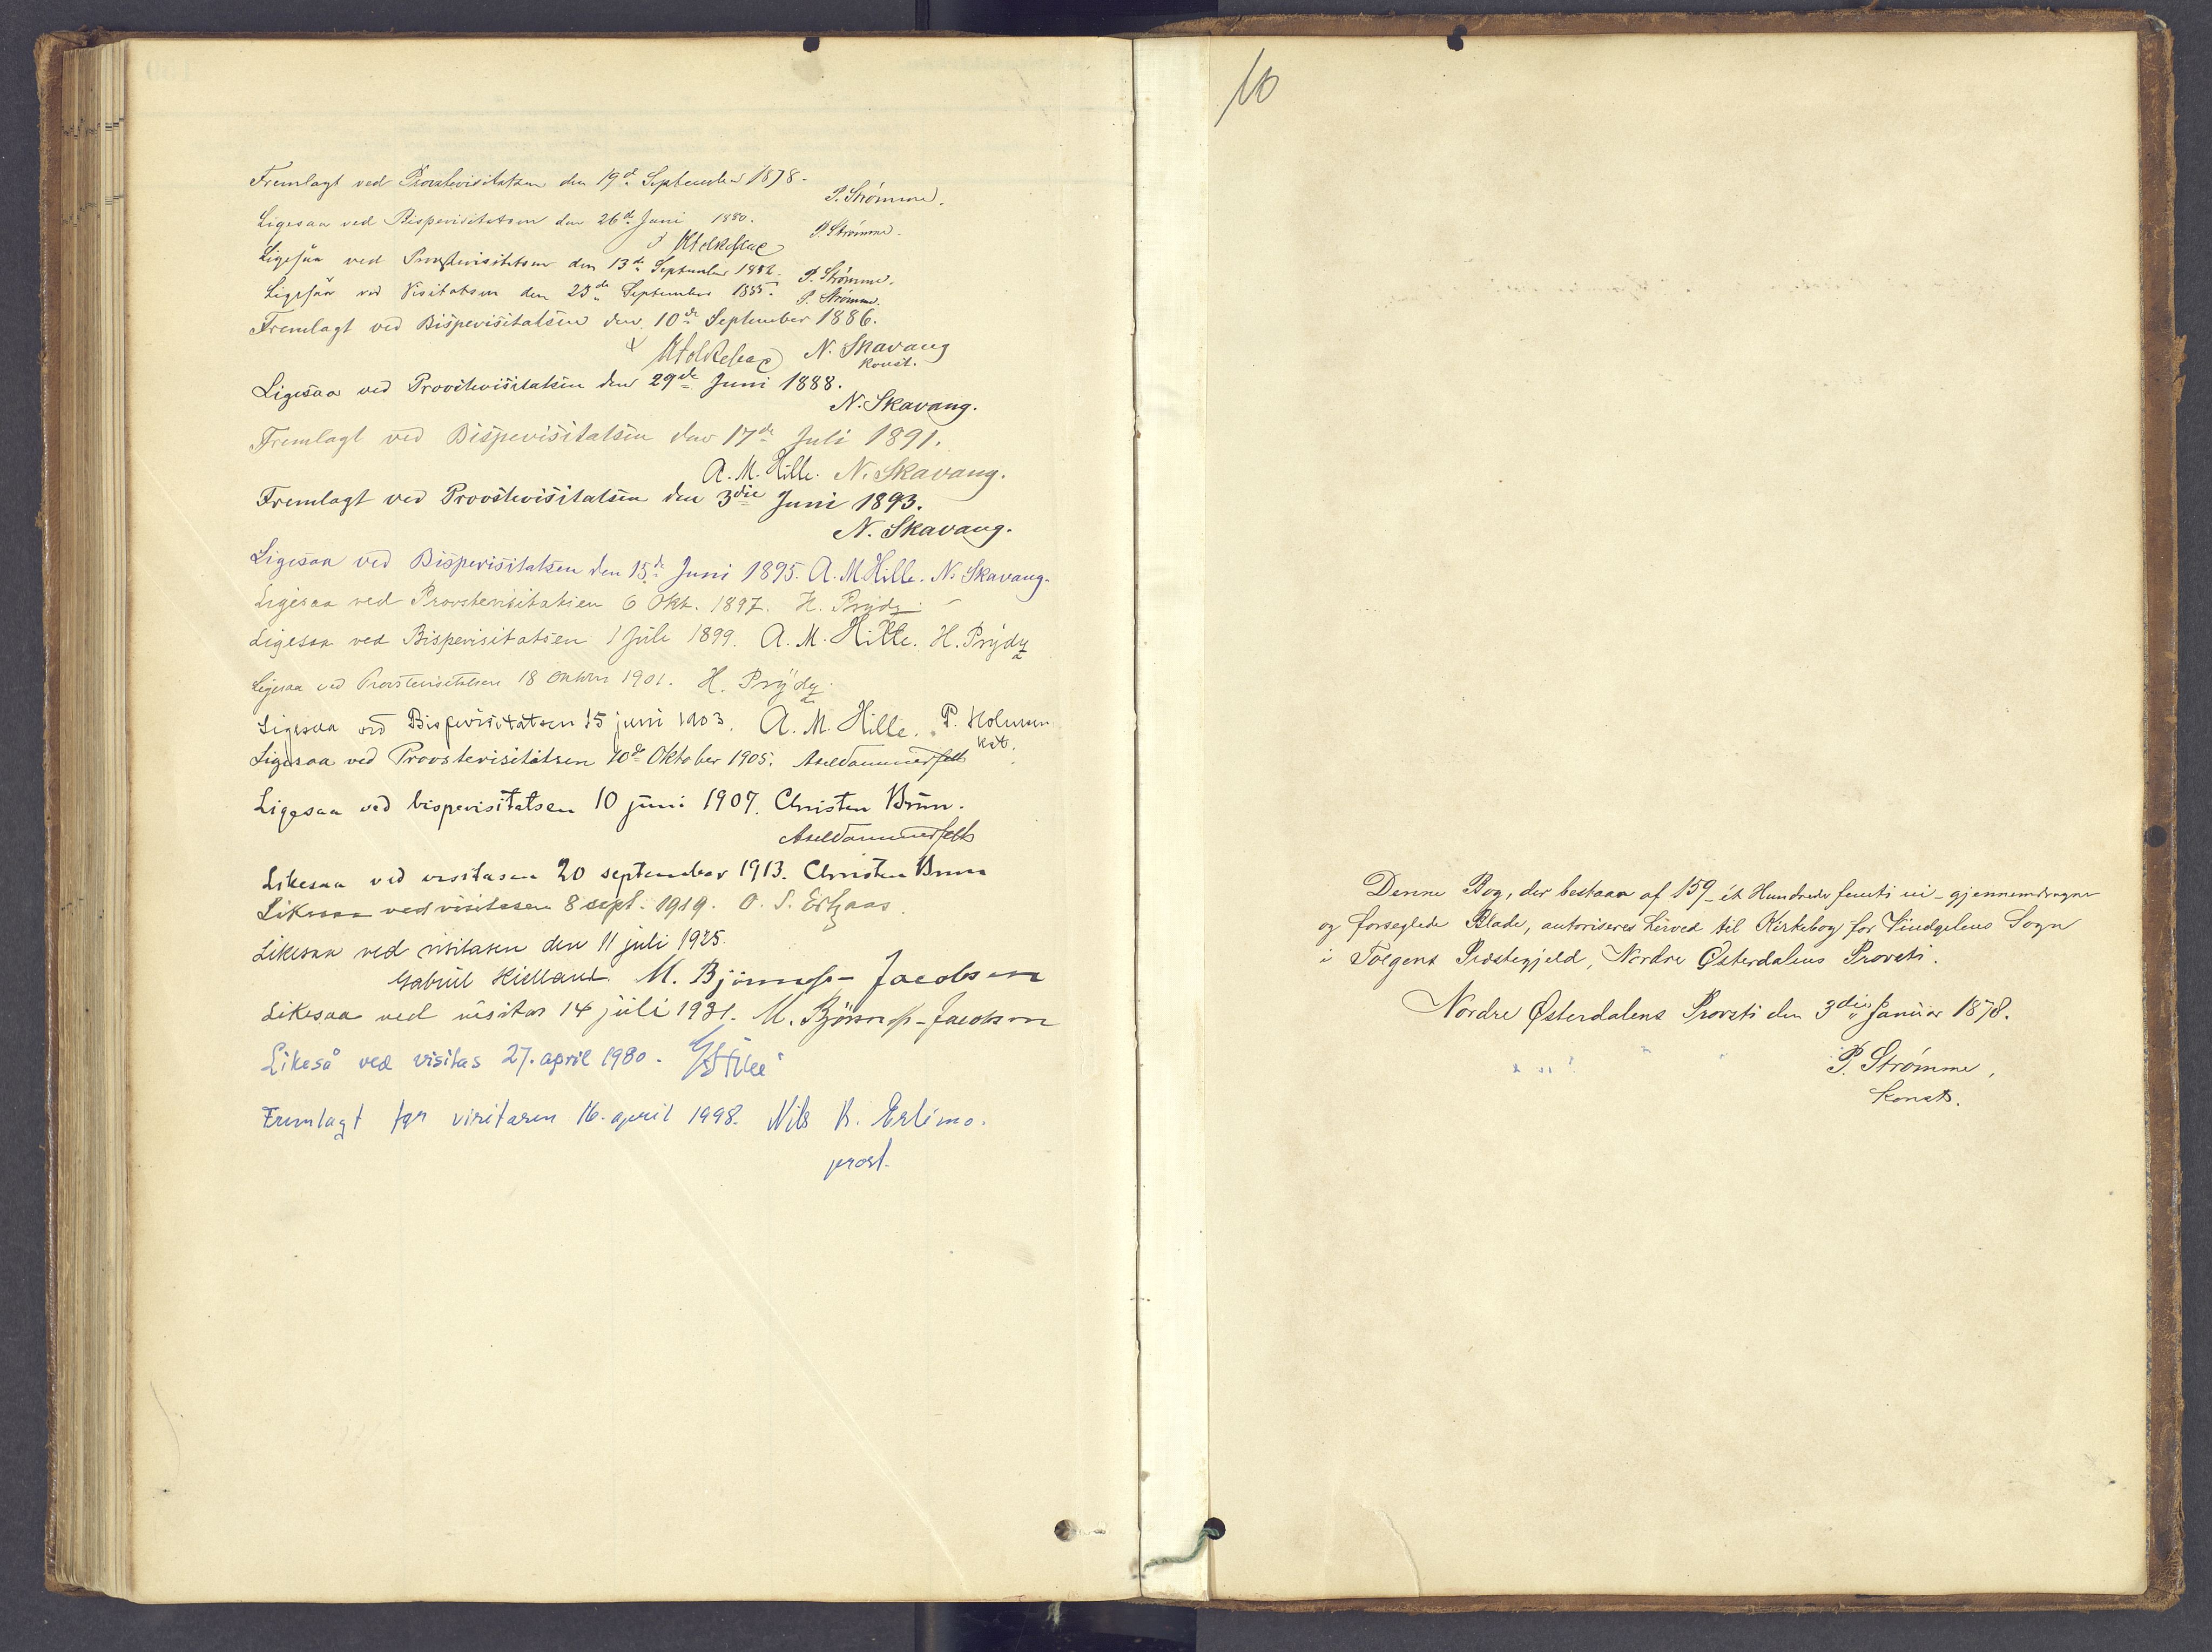 Fremlagt ved Provstevisitatsen den 19de September 1878.
P. Strömme.
Ligesaa ved Bispevisitatsen den 26de Juni 1880.
P. Strömme.
Ligesaa ved Provstevisitatsen den 13de September 1882. P. Strömme.
Ligesaa ved Visitatsen den 23de September 1885. P. Strömme.
Fremlagt ved Bispevisitatsen den 10de September 1886.
N. Skavang
konst.
Ligesaa ved Provstevisitatsen den 29de Juni 1888.
N. Skavang.
Fremlagt ved Bispevisitatsen den 17de Juli 1891.
A. M. Hille. N. Skavang.
Fremlagt ved Provstevisitatsen den 3die Juni 1893.
N. Skavang.
Ligesaa ved Bispevisitatsen den 15de Juni 1895. A. M Hille. N. Skavang.
Ligesaa ved Provstevisitatsen 6 Okt. 1897. H. Prydz.
Ligesaa ved Bispevisitatsen 1 Juli 1899. A. M. Hille. H. Prydz
Ligesaa ved Provstevisitatsen 18 Oktober 1901. H. Prydz.
Ligesaa ved Bispevisitatsen 15 juni 1903. A. M. Hille. P. Holmsen
kst.
Ligesaa ved Provstevisitatsen 10de Oktober 1905. Axel Dammerfelt
Ligesaa ved bispevisitatsen 10 juni 1907. Christen Brun.
Axel Dammerfelt
Likesaa ved visitasen 20 september 1913. Christen Brun
Likesaa ved visitasen 8 sept. 1919. O. S.
Likesaa ved visitasen den 11 juli 1925.
Gabriel Kielland. M. Björnness-Jacobsen
Likesaa ved visitas 14 juli 1931. M. Björnness-Jacobsen
Likeså ved visitas 27. april 1980.
Fremlagt for visitasen 16. april 1998. Nils K. Erlimo.
prost.
10
Denne Bog, der bestaar af 159 - ét Hundrede femti ni - gjennemdragne
og forseglede Blade, autoriseres herved til Kirkebog for Vindgelens Sogn
i Tolgens Præstegjeld, Nordre Østerdalens Provsti.
Nordre Østerdalens Provsti den 3die Januar 1878.
P. Strömme,
konst.